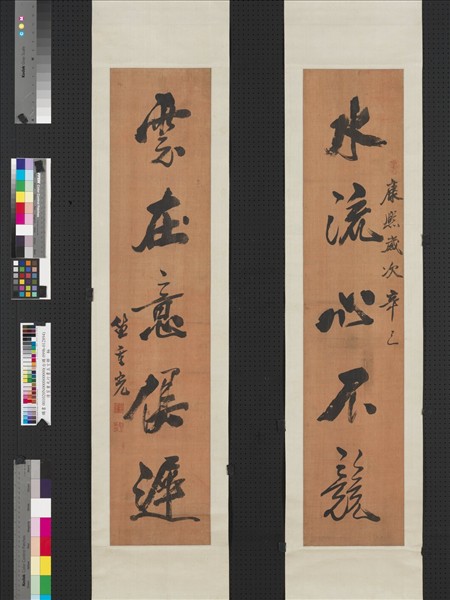 水流心不競
康熙歲次辛巳
雲在意俱遲
笪重光